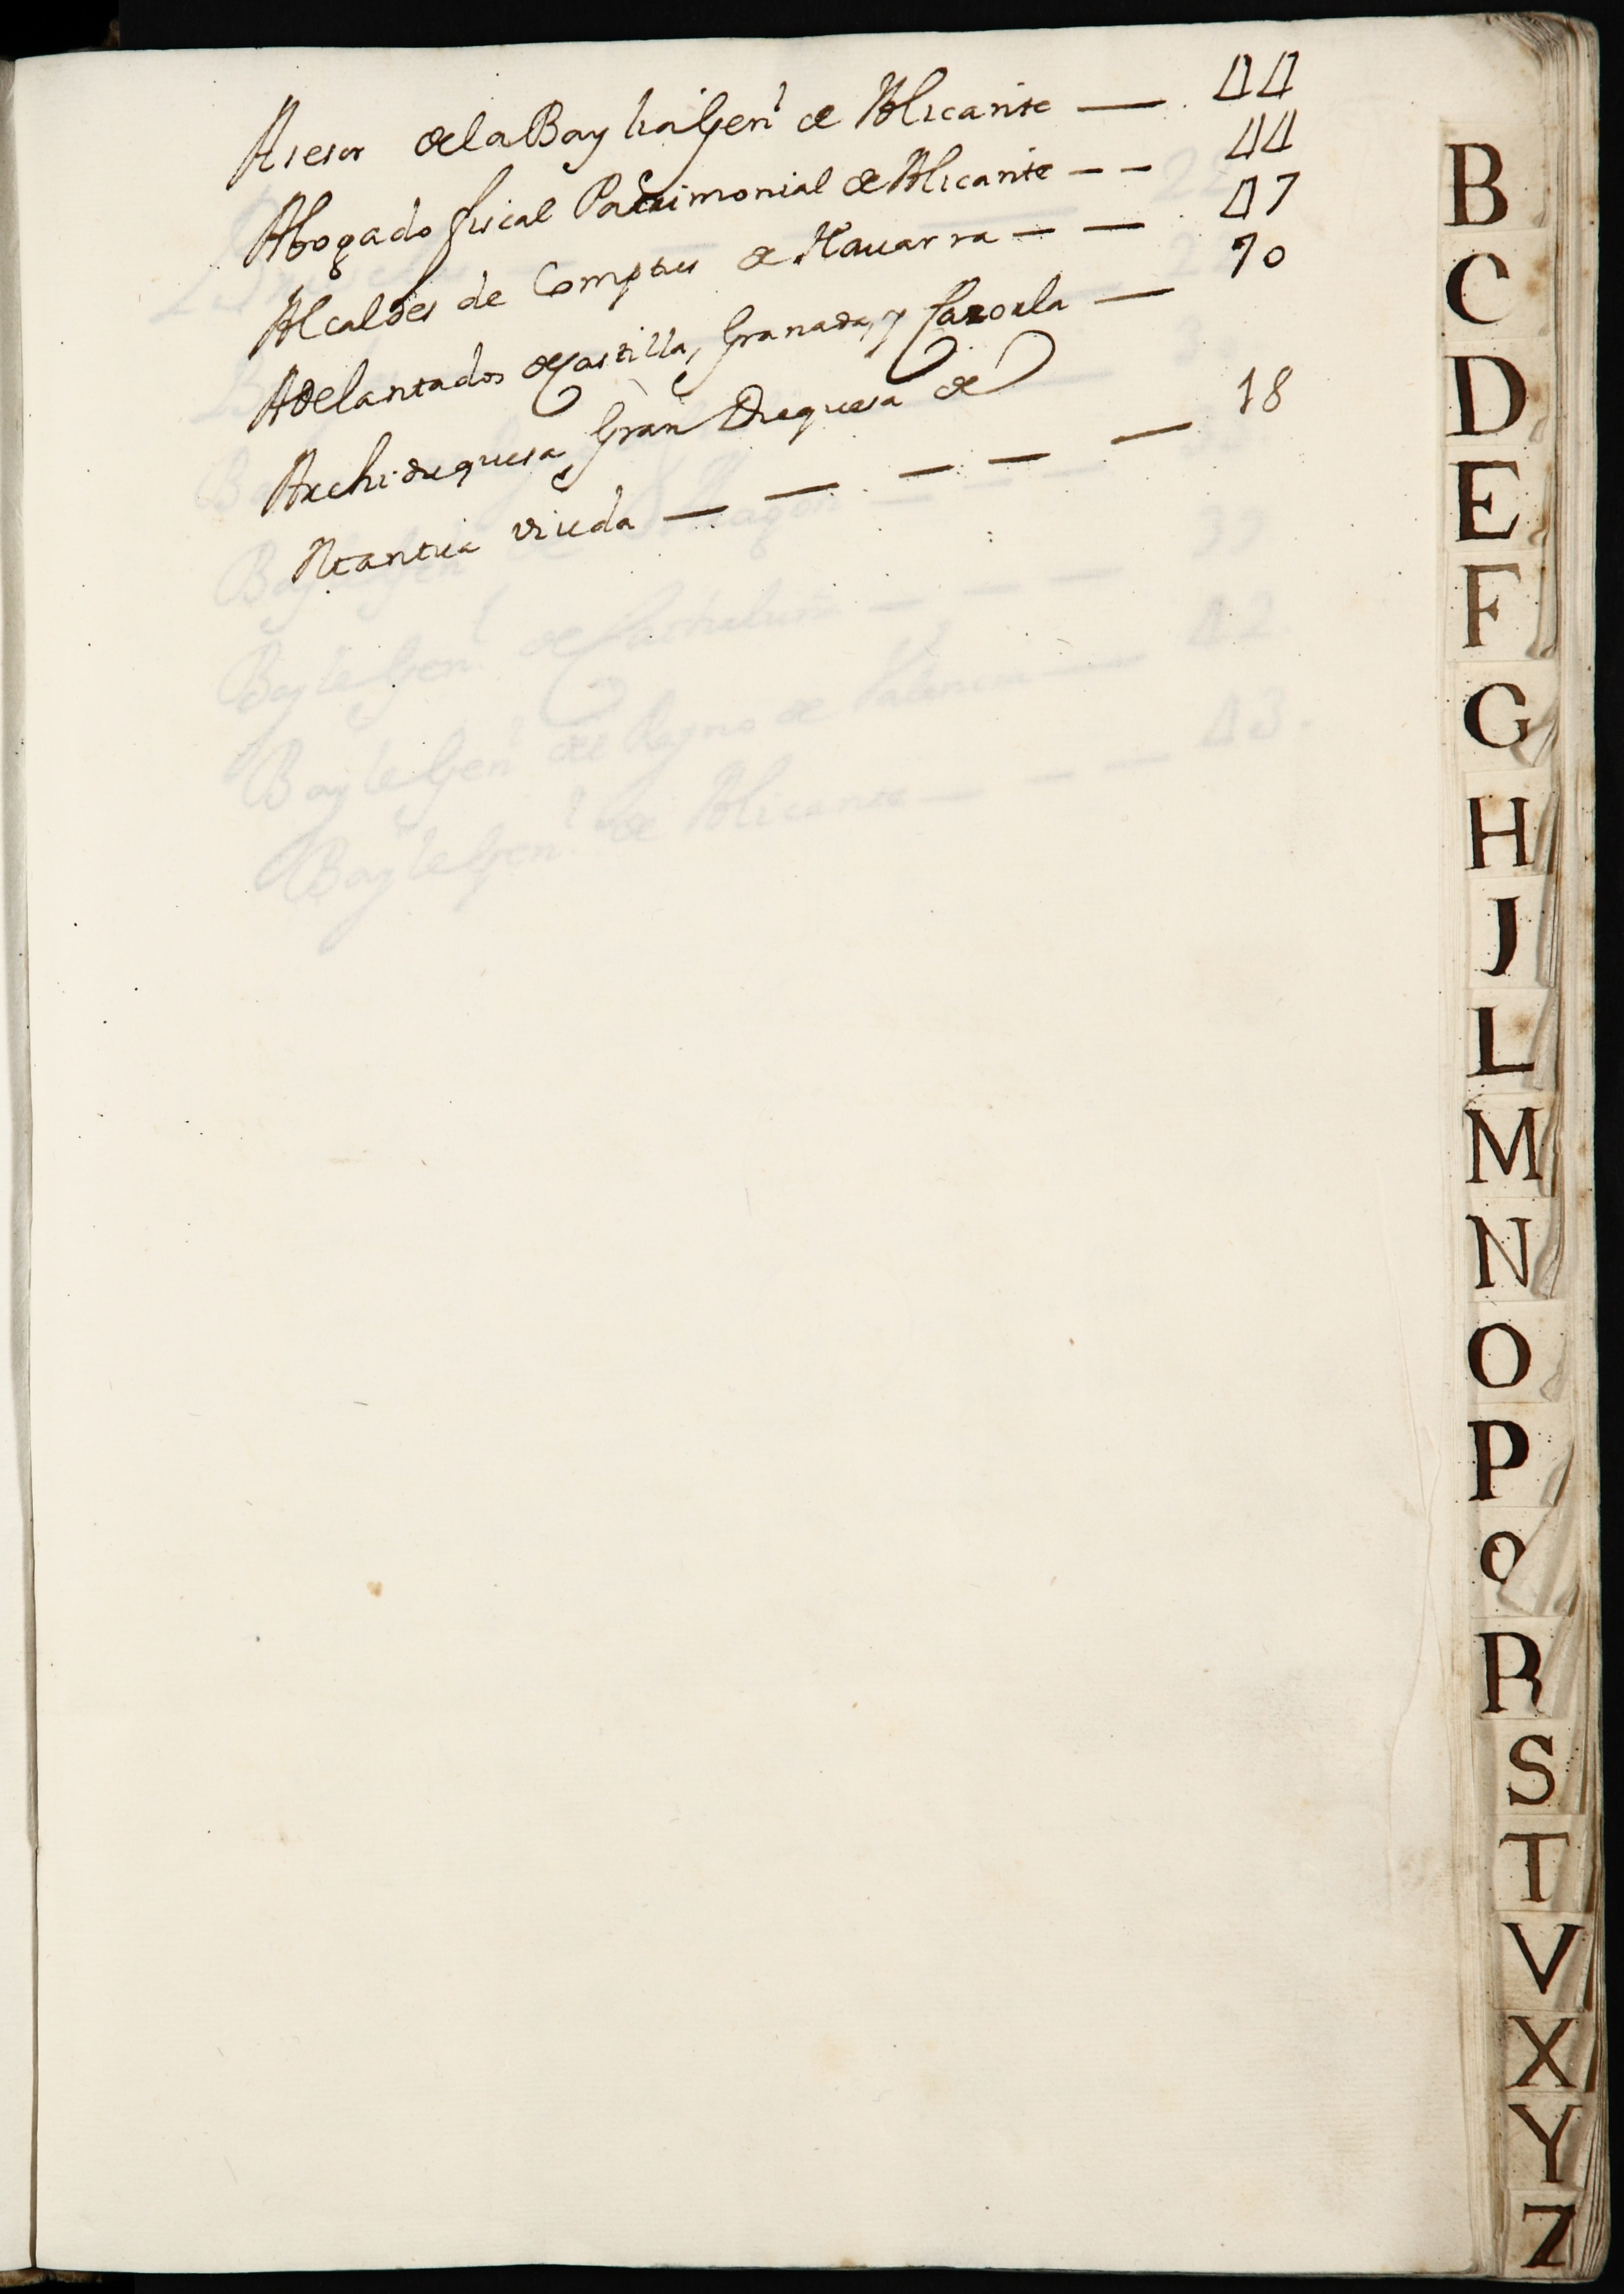 Asesor de la Baylia Gen.l de Alicante — 44
Abogado fiscal Patrimonial de Alicante — — 44
Alcaldes de Comptus de Nauarra — — 47
Adelantados de Castilla, Granada, y Cazorla — 70
Archiduquesa Gran Duquesa de
Viuda — — — — — 18
B
C
D
E
F
G
H
J
L
M
N
O
P
Q
R
S
T
V
X
Y
Z